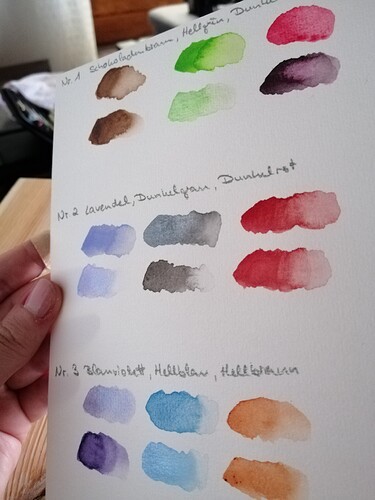 Nr. 1 Schokoladenbraun, Hellgrün, Dunkel
Nr. 2 Lavendel, Dunkelgrau, Dunkelrot
Nr. 3 Blauviolett, Hellblau, Hellbraun